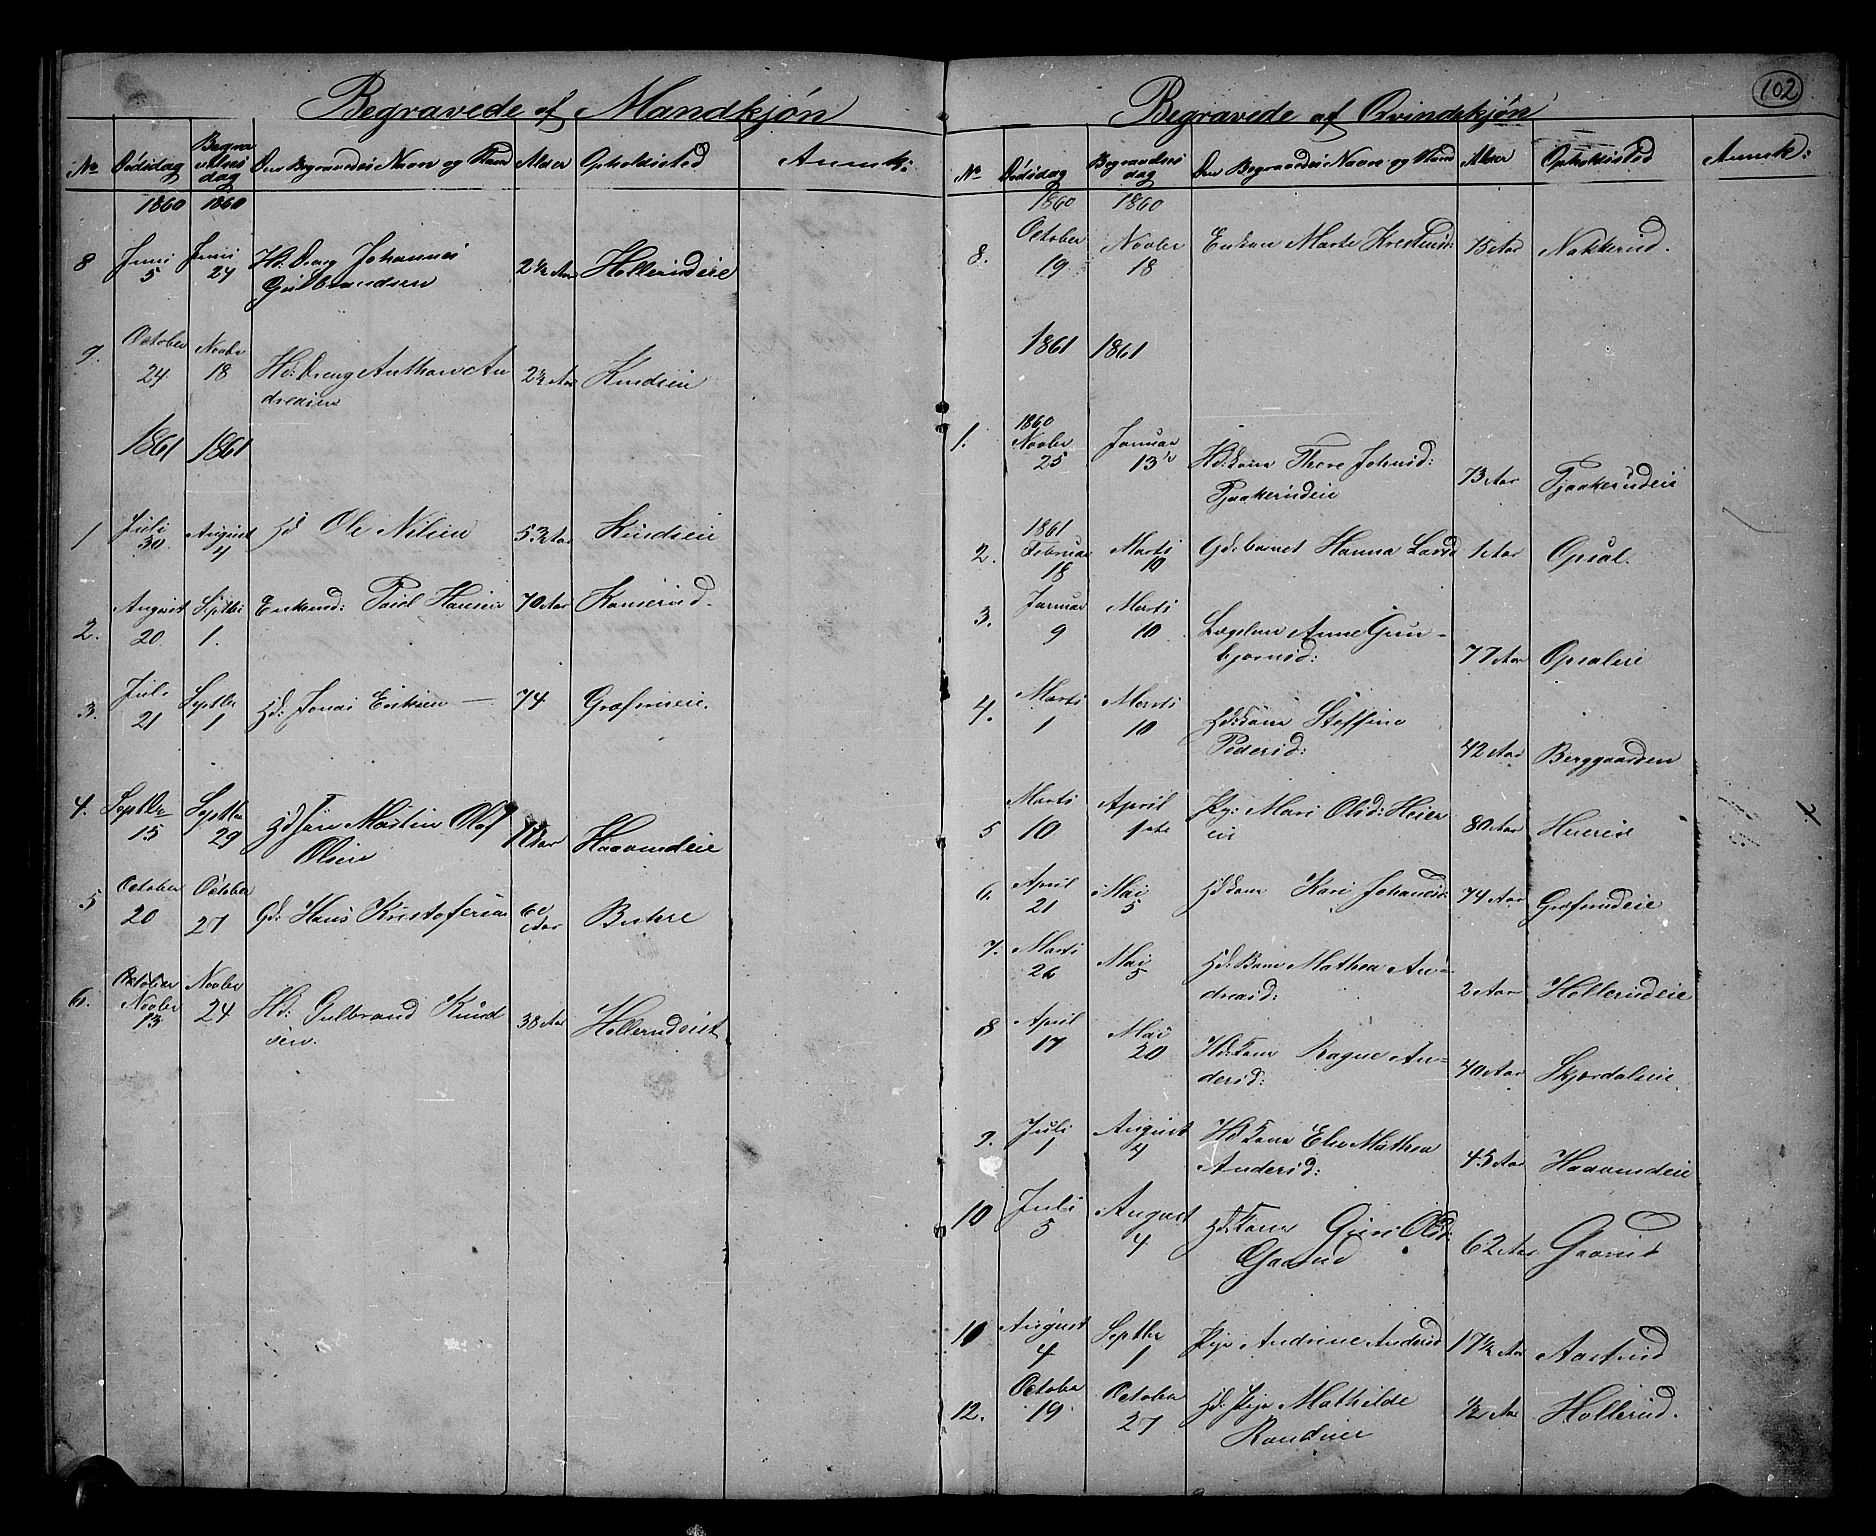 Begravede af Mandkjøn
No Dødsdag Begravelses dag Den Begravedes Navn og Stand Alder Opholdssted Anmk:
1860 1860
8 Juni 5 Juni 24 Hd: Dreng Johannes
Gulbrandsen 2½ Aar Hollerudeie
9. October 24 Novbr 18 Hd: Dreng Anthon An
dreasen 2½ Aar Knudseie
1861 1861
1 Juli 30 August 4 Hd Ole Nilsen 53 Aar Kindseie
2. August 20. Septbr 1. Enkemd: Poul Hansen 70 Aar Kanserud.
3. Juli 21 Septbr 1 Hd: Jonas Eriksen — 74
4. Septbr 15 Septbr 29 Hd Søn Martin Olaf
Olsen Haavrudeie
5 October 20 October 27 Gd: Hans Kristofersen Aar Buhre
6. Novber 13 Novber 24 Hd: Gulbrand Knud
sen. 38 Aar
102
Begravede af Qvindekjøn
No Dødsdag Begravelses dag Den Begravedes Navn og Stand Alder Opholdssted Anmk:
1860 1860
8. October 19 Novber 18 Enkon Marte Kristensd: 75 Aar Nakkerud.
1861 1861
1. 1860 Novbr 25 Januar 13 Hd: Kone Thore Johnsd:
Tjaakerudeie 73 Aar Tjaakerudeie
2. 1861 Februar 18 Marts 10 Gd: barnet Hanna Larsd 1 Aar Opsal.
3. Januar 9 Marts 10 Lægslem Anne Gun-
bjørnsd: 77 Aar Opsaleie
4. Marts 1 Marts 10 Hd: Kone Steffine
Pedersd: 42 Aar Berggaarden
5 Marts 10 April 1ste Pige Mari Olsd: Heier
eie 80 Aar
6. April 21 Mai 5 Hd: Kone Kari Johansd: 74 Aar
7. Marts 26 Mai 5 Hd: Barn Mathea An-
dreasd: 2 Aar Hollerudeie
8 April 17 Mai 20 Hd: Kone Ragne An-
dersd: 40 Aar Skjerdalseie
9. Juli 1 August 4 Hd Kone Else Mathea
Andersd: 45 Aar Haavrudeie
10 Juli 5 August 4 Hd: Kone Guri Olsd:
Gaasrud 62 Aar
10 August 4 Septbr 1 Pige Andrine Andersd 17½ Aar Aasterud
12. October 19 October 27 Hd: Pige Mathilde
½ Aar Hollerud.